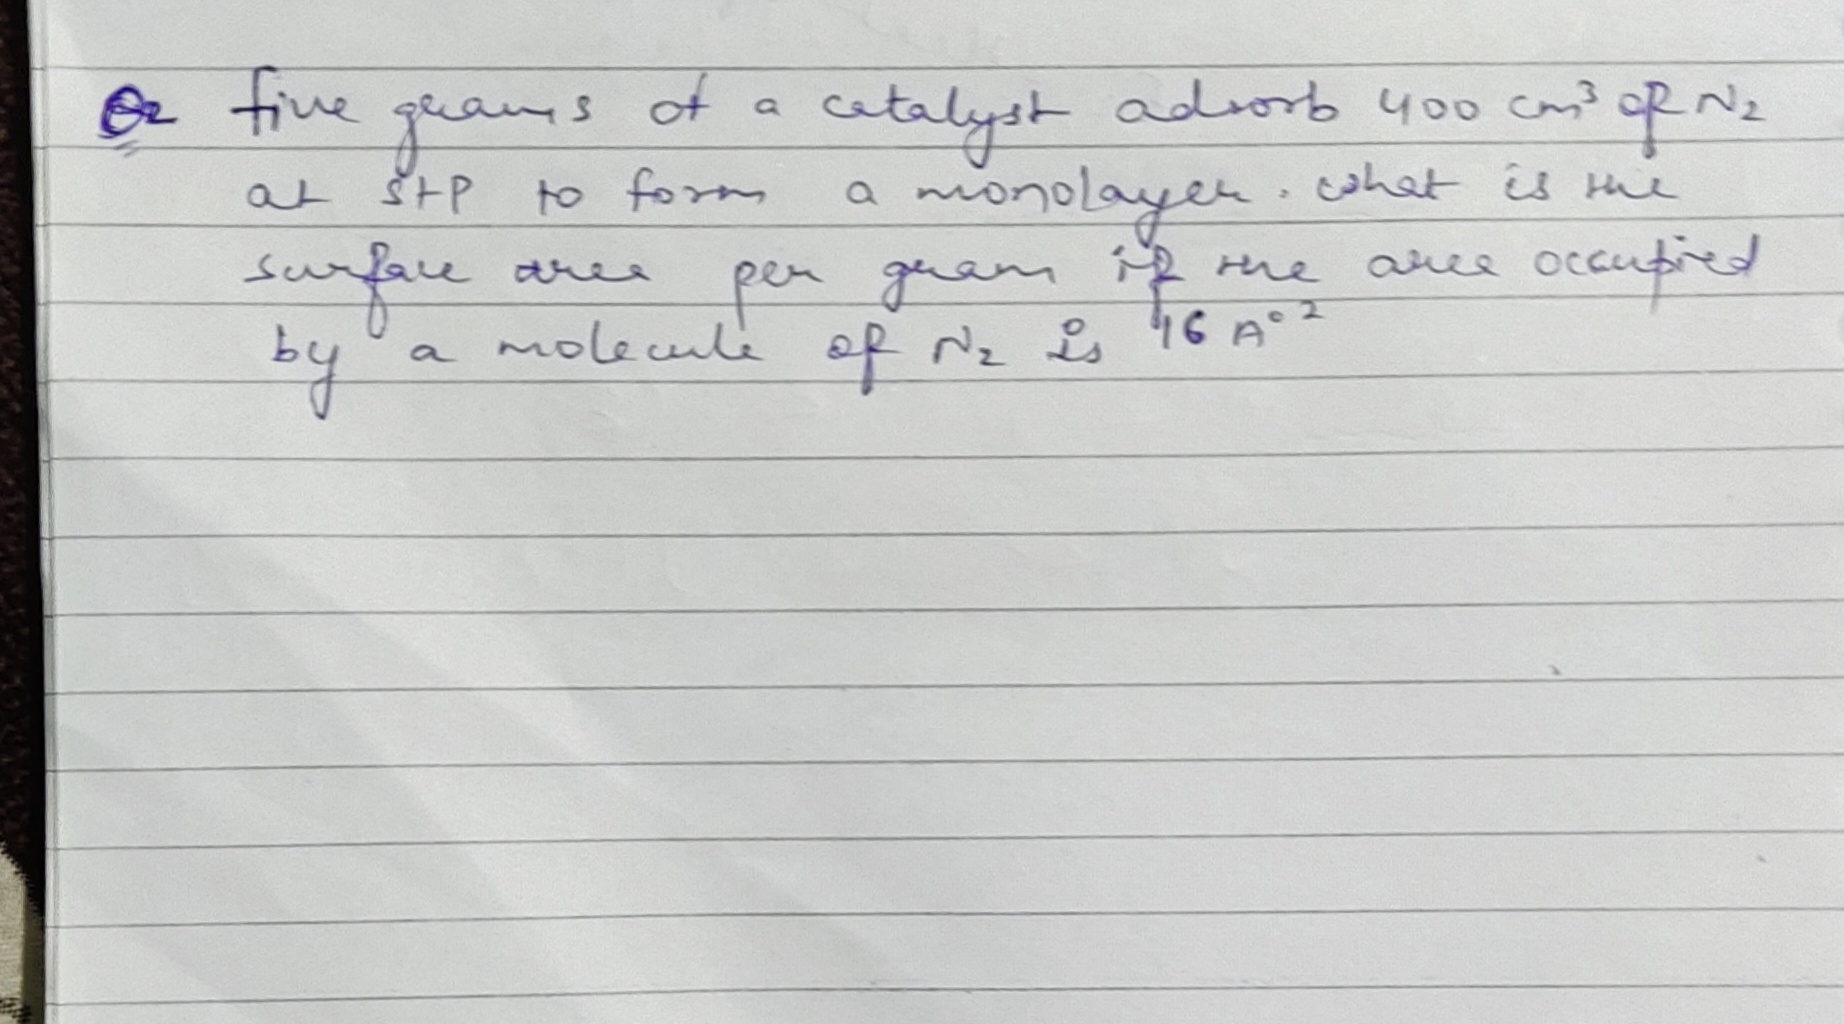 Q2 five grams of a catalyst adsorb 400 cm³ of N₂
at STP to form a monolayer. what is the
surface area per gram if the area occupied
by a molecule of N₂ is 16 A°²